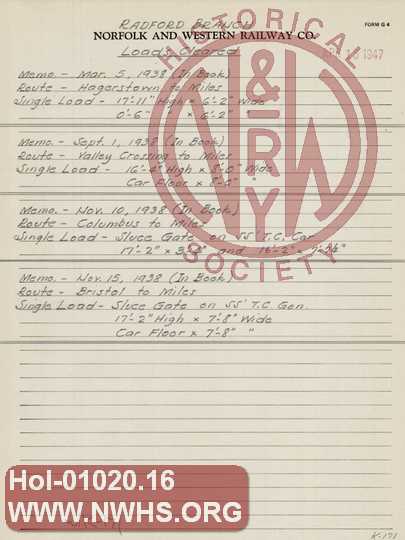 RADFORD BRANCH
FORM G 4
NORFOLK AND WESTERN RAILWAY CO.
Loads Cleared
1947
Memo. - Mar. 5, 1938 (In Book)
Route - Hagerstown to Miles
Single Load - 17'-11" High x 6'-2" Wide
0'-6" x 6'-2"
Memo. - Sept. 1, 1938 (In Book)
Route - Valley Crossing to Miles
Single Load - 16'-4" High x 8'-0" Wide
Car Floor x 8'-4" "
Memo. - Nov. 10, 1938 (In Book)
Route - Columbus to Miles
Single Load - Sluce Gate on T.C. Car
17'-2" x and
Memo. - Nov. 15, 1938 (In Book)
Route - Bristol to Miles
Single Load - Sluce Gate on 55' T.C. Gon.
17'-2" High x 7'-8" Wide
Car Floor x 7'-8" "
HISTORICAL
N&W RY
SOCIETY
Hol-01020.16
www.NWHS.org
K-171